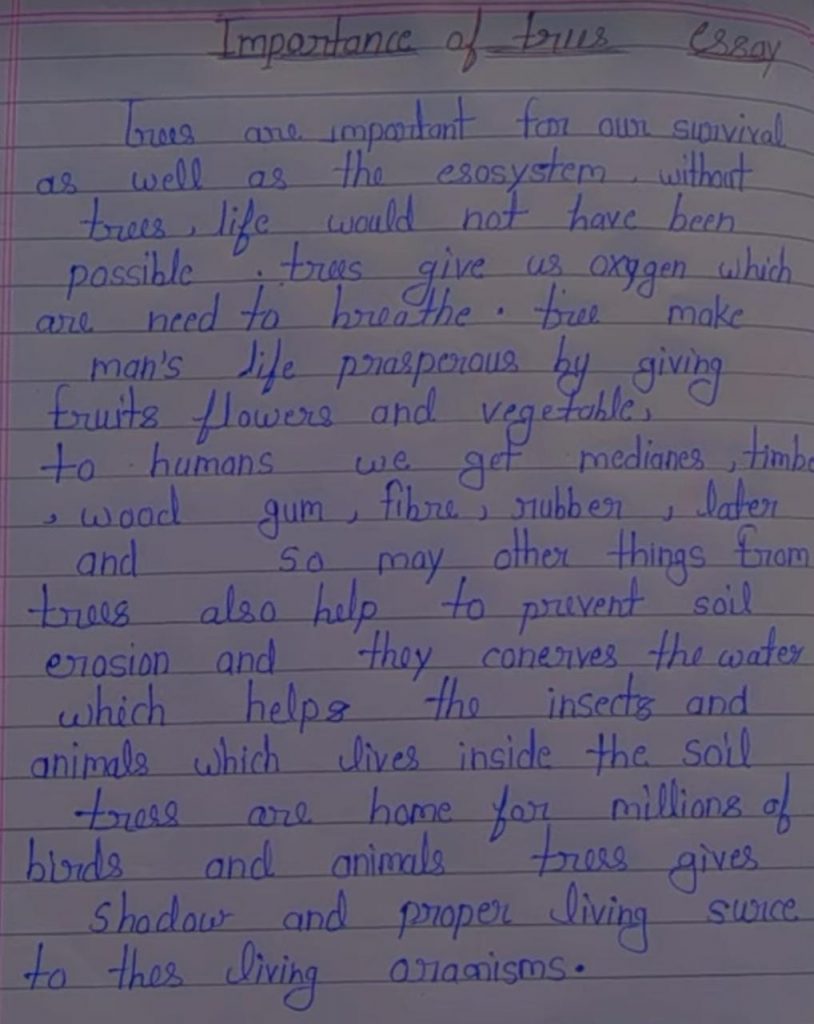 Importance of trus essay
Trees are important for our survival
as well as the esosystem. without
trees, life would not have been
possible . trees give us oxygen which
are need to breathe. tree make
man's life prasperous by giving
fruits flowers and vegetable,
to humans we get medianes, timbe
, wood gum, fibre, rubber, later
and so may other things from
trees also help to prevent soil
erosion and they conerves the water
which helps the insects and
animals which lives inside the soil
tress are home for millions of
birds and animals tress gives
shadow and proper living surce
to thes living oraanisms.